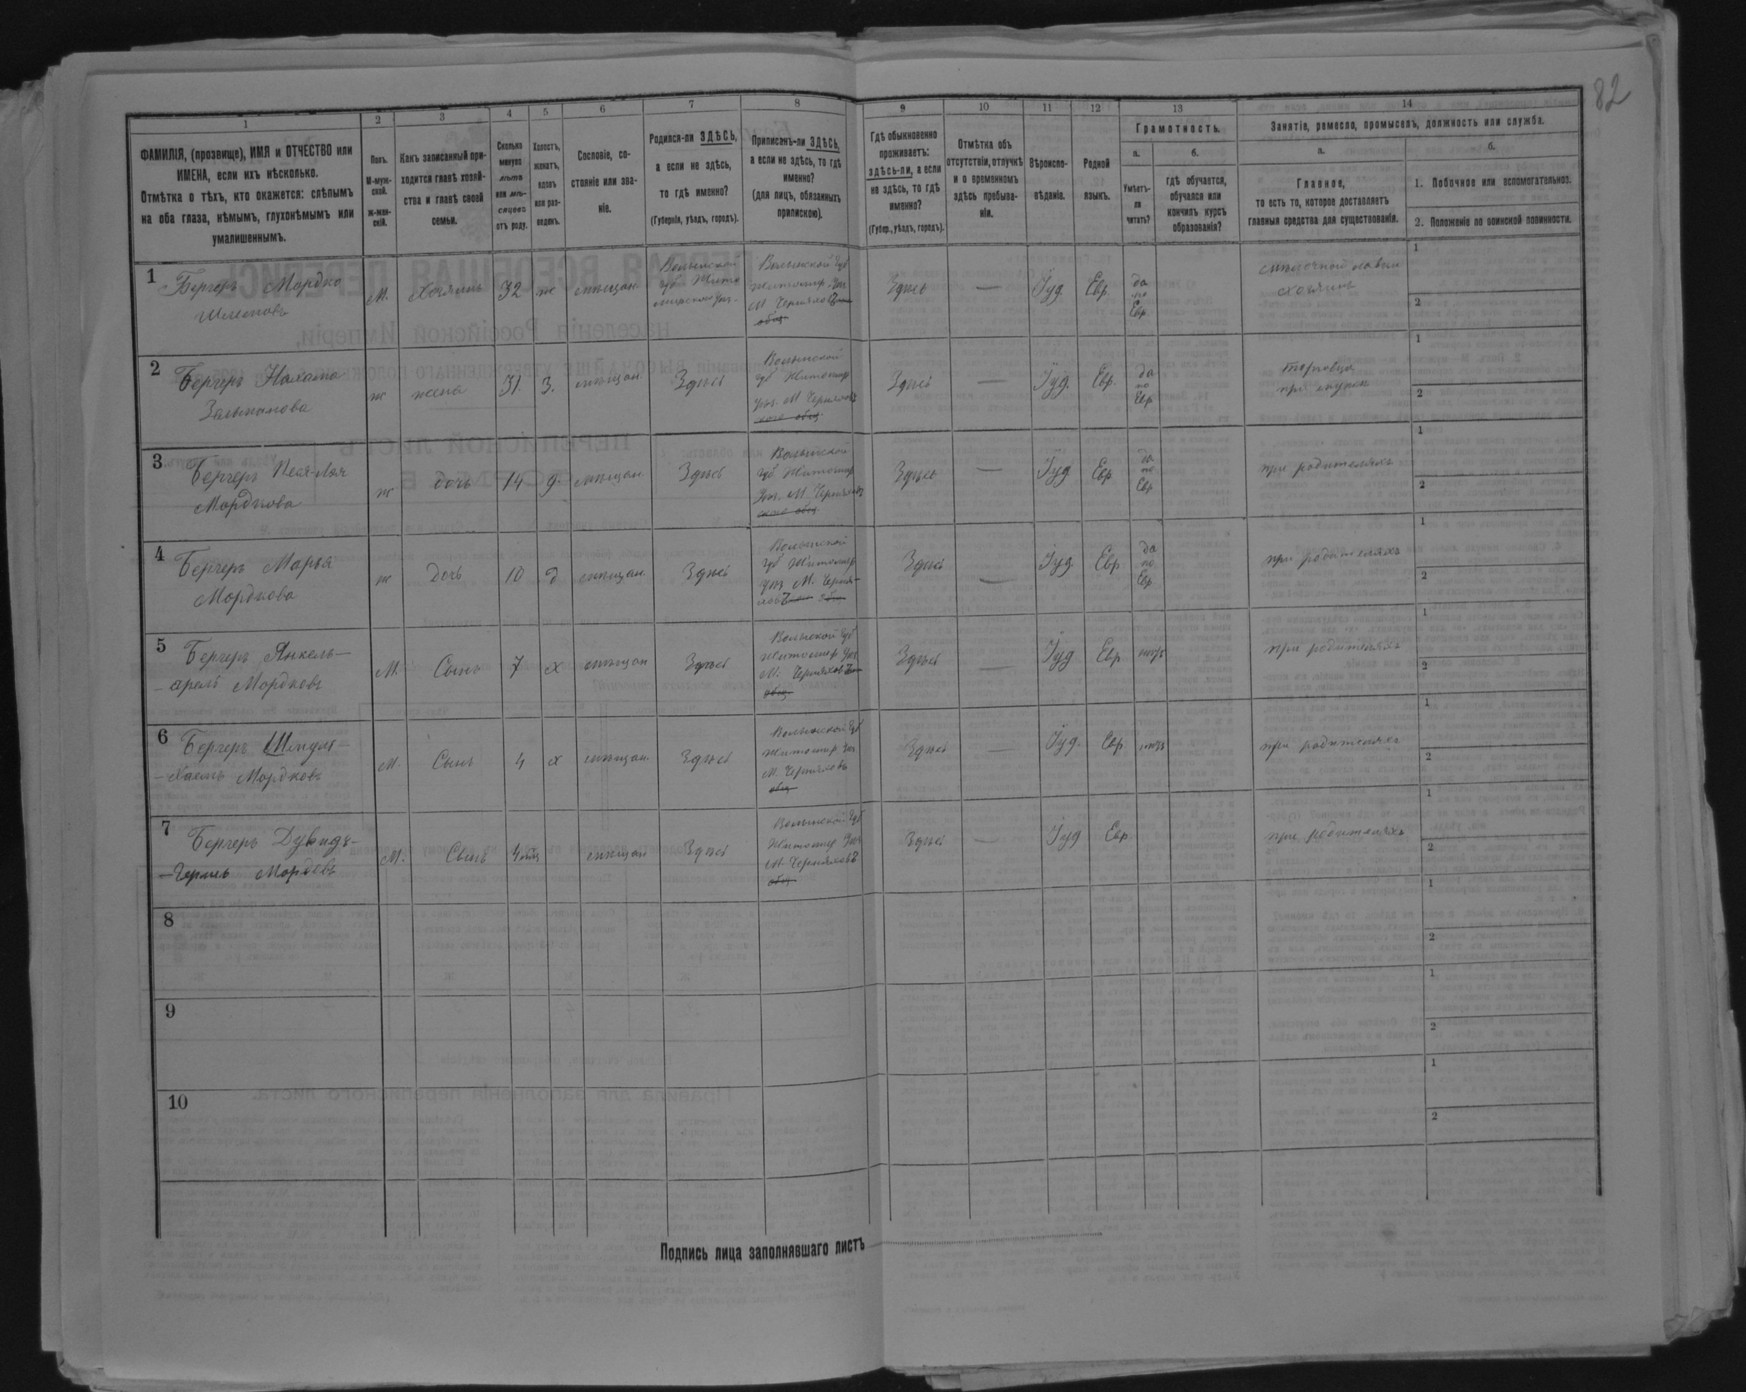 82
1 2 3 4 5 6 7 8 9 10 11 12 13 14
ФАМИЛІЯ, (прозвище), ИМЯ и ОТЧЕСТВО или
ИМЕНА, если ихъ нѣсколько.
Отмѣтка о тѣхъ, кто окажется: слѣпымъ
на оба глаза, нѣмымъ, глухонѣмымъ или
умалишеннымъ.
Полъ.
М-муж-
ской.
Ж-жен-
скій.
Какъ записанный при-
ходится главѣ хозяй-
ства и главѣ своей
семьи.
Сколько
минуло
лѣтъ
или мѣ-
сяцевъ
отъ роду.
Холостъ,
женатъ,
вдовъ
или раз-
веденъ.
Сословіе, со-
стояніе или зва-
ніе.
Родился-ли ЗДѢСЬ,
а если не здѣсь,
то гдѣ именно?
(Губернія, уѣздъ, городъ).
Приписанъ-ли ЗДѢСЬ,
а если не здѣсь, то гдѣ
именно?
(для лицъ, обязанныхъ
припискою).
Гдѣ обыкновенно
проживаетъ:
здѣсь-ли, а если
не здѣсь, то гдѣ
именно?
(Губер., уѣздъ, городъ).
Отмѣтка объ
отсутствіи, отлучкѣ
и о временномъ
здѣсь пребыва-
ніи.
Вѣроиспо-
вѣданіе.
Родной
языкъ.
Грамотность.
а.
Умѣетъ-
ли
читать?
б.
гдѣ обучается,
обучался или
кончилъ курсъ
образованія?
Занятіе, ремесло, промыселъ, должность или служба.
а.
Главное,
то есть то, которое доставляетъ
главныя средства для существованія.
б.
1. Побочное или вспомогательное.
2. Положеніе по воинской повинности.
1
Бергеръ Мордко
М. Хозяинъ 32 ж мѣщан.
Волынской
губ Жито
мирскаго уѣз.
Волынской Губ
Житомир Уѣз.
М. Черняхов
общ
Здѣсь — Іуд Евр.
да
по
Евр
1
2
2
Бергеръ Нахама
Зальманова
ж жена 31. З. мѣщан. Здѣсь
Волынской
губ Житомир
уѣз. М Черняхов
скаго общ
Здѣсь — Іуд. Евр.
да
по
Евр
Торговца
1
2
3
Бергеръ Песя-Лея
Мордкова
ж дочь 14 д. мѣщан. Здѣсь
Волынской
губ Житомир
Уѣз. М. Черняхов
скаго общ
Здѣсь — Іуд Евр
да
по
Евр
при родителяхъ
1
2
4
Бергеръ Марья
Мордкова
ж Дочь 10 д мѣщан. Здѣсь
Волынской
губ Житомир
уѣз М. Черня-
хов общ
Здѣсь — Іуд Евр
да
по
Евр
при родителяхъ
1
2
5
Бергеръ Янкель—
—арель Мордковъ
М. Сынъ 7 х мѣщан Здѣсь
Волынской Губ
Житомир Уѣз
М. Черняхов
общ
Здѣсь — Іуд Евр нѣтъ
при родителяхъ
1
2
6
Бергеръ
—Хаимъ Мордковъ
М. Сынъ 4 х мѣщан. Здѣсь
Волынской Губ
Житомир Уѣз
М. Черняховъ
общ
Здѣсь — Іуд. Евр нѣтъ
при родителяхъ
1
2
7
Бергеръ Дувидъ-
М. Сынъ 4 мѣс мѣщан Здѣсь
Волынской Губ
Житомир Уѣз
М. Черняховъ
общ
Здѣсь — Іуд Евр
при родителяхъ
1
2
8
1
2
9
1
2
10
1
2
Подпись лица заполнявшаго листъ